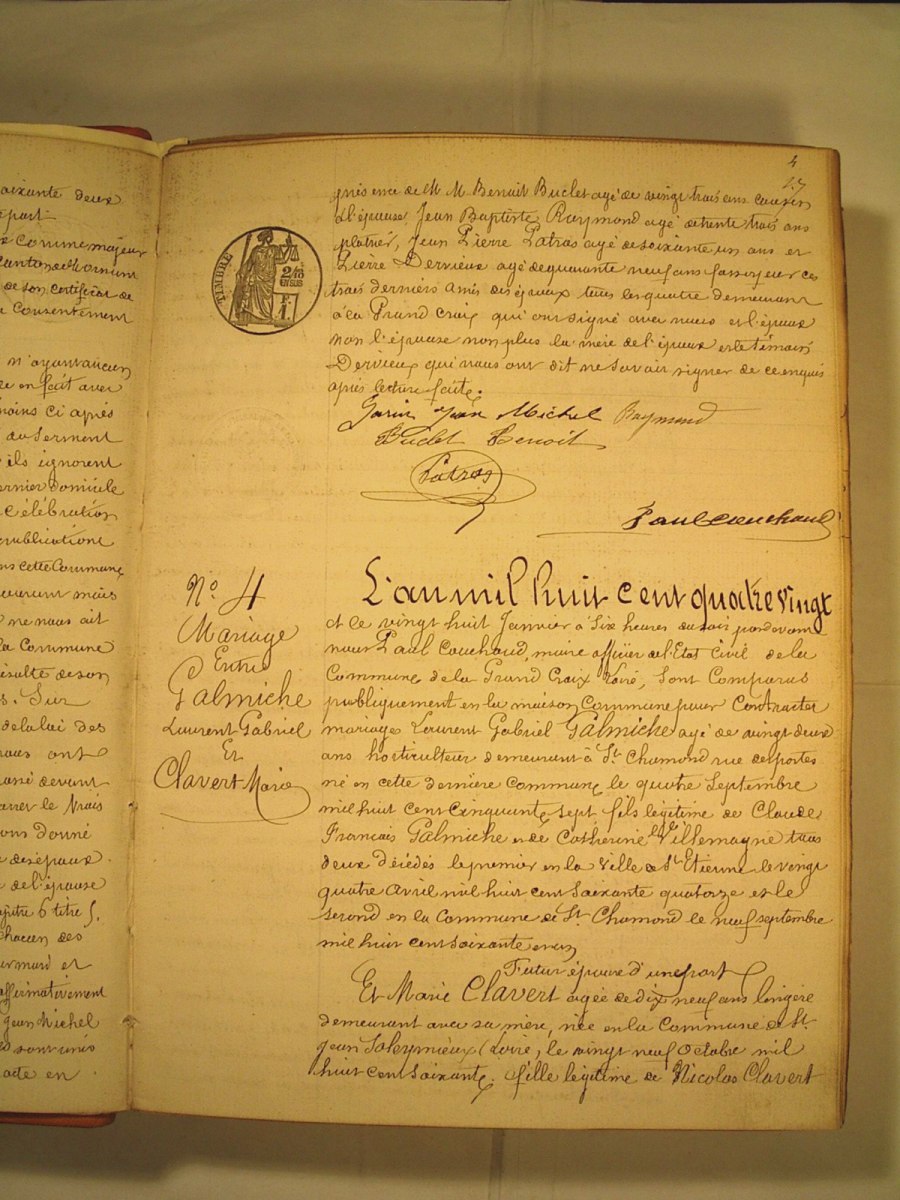 aixante deux
part
x comme majeur
canton de Mornant
de son certificat de
consentement
n'ayant aucun
re en foit avec
moins ci après
au serment
ils ignorent
ernier domicile
célébration
publications
ns cette Commune
mais
ne nous ait
la Commune
résulte de son
s. Sur
de la loi des
nous ont
devant
le vrais
donné
des époux.
de l'épouse
titre 5.
chacun des
mari et
affirmativement
Jean Michel
sont unis
acte en
4
27
présence de M M Benoit Buclet agé de vingt trois ans cousin
de l'épouse Jean Baptiste Raymond agé de trente trois ans
platrier, Jean Pierre Patras agé de soixante un ans et
Pierre Dervieux agé de quarante neuf ans fossoyeur ces
trois derniers amis des époux tous les quatre demeurant
à la Grand Croix qui ont signé avec nous et l'époux
non l'épouse non plus la mère de l'époux et le témoin
Dervieux qui nous ont dit ne savoir signer de ce enquis
après lecture faite.
TIMBRE
2/10
EN SUS
F.
1.
Jean Michel Raymond
Buclet Benoit
Patras
Paul Couchoud
N° 4
Mariage
Entre
Galmiche
Laurent Gabriel
Et
Clavert Marie
L'an mil huit cent quatre vingt
et le vingt huit Janvier à six heures du soir pardevant
nous Paul Couchoud, maire officier de l'Etat Civil de la
Commune de la Grand Croix Loire, sont Comparus
publiquement en la maison Commune pour Contracter
mariage Laurent Gabriel Galmiche agé de vingt deux
ans horticulteur demeurant à St Chamond rue des portes
né en cette dernière Commune le quatre Septembre
mil huit cent cinquante sept fils légitime de Claude
Francois Galmiche et de Catherine Villemagne tous
deux décédés le premier en la Ville de St Etienne le vingt
quatre avril mil huit cent soixante quatorze et le
second en la Commune de St Chamond le neuf septembre
mil huit cent soixante
Futur époux d'une part
Et Marie Clavert agée de dix neuf ans lingère
demeurant avec sa mère, née en la Commune de St
Jean Soleymieux (Loire, le vingt neuf Octobre mil
huit cent soixante. fille légitime de Nicolas Clavert